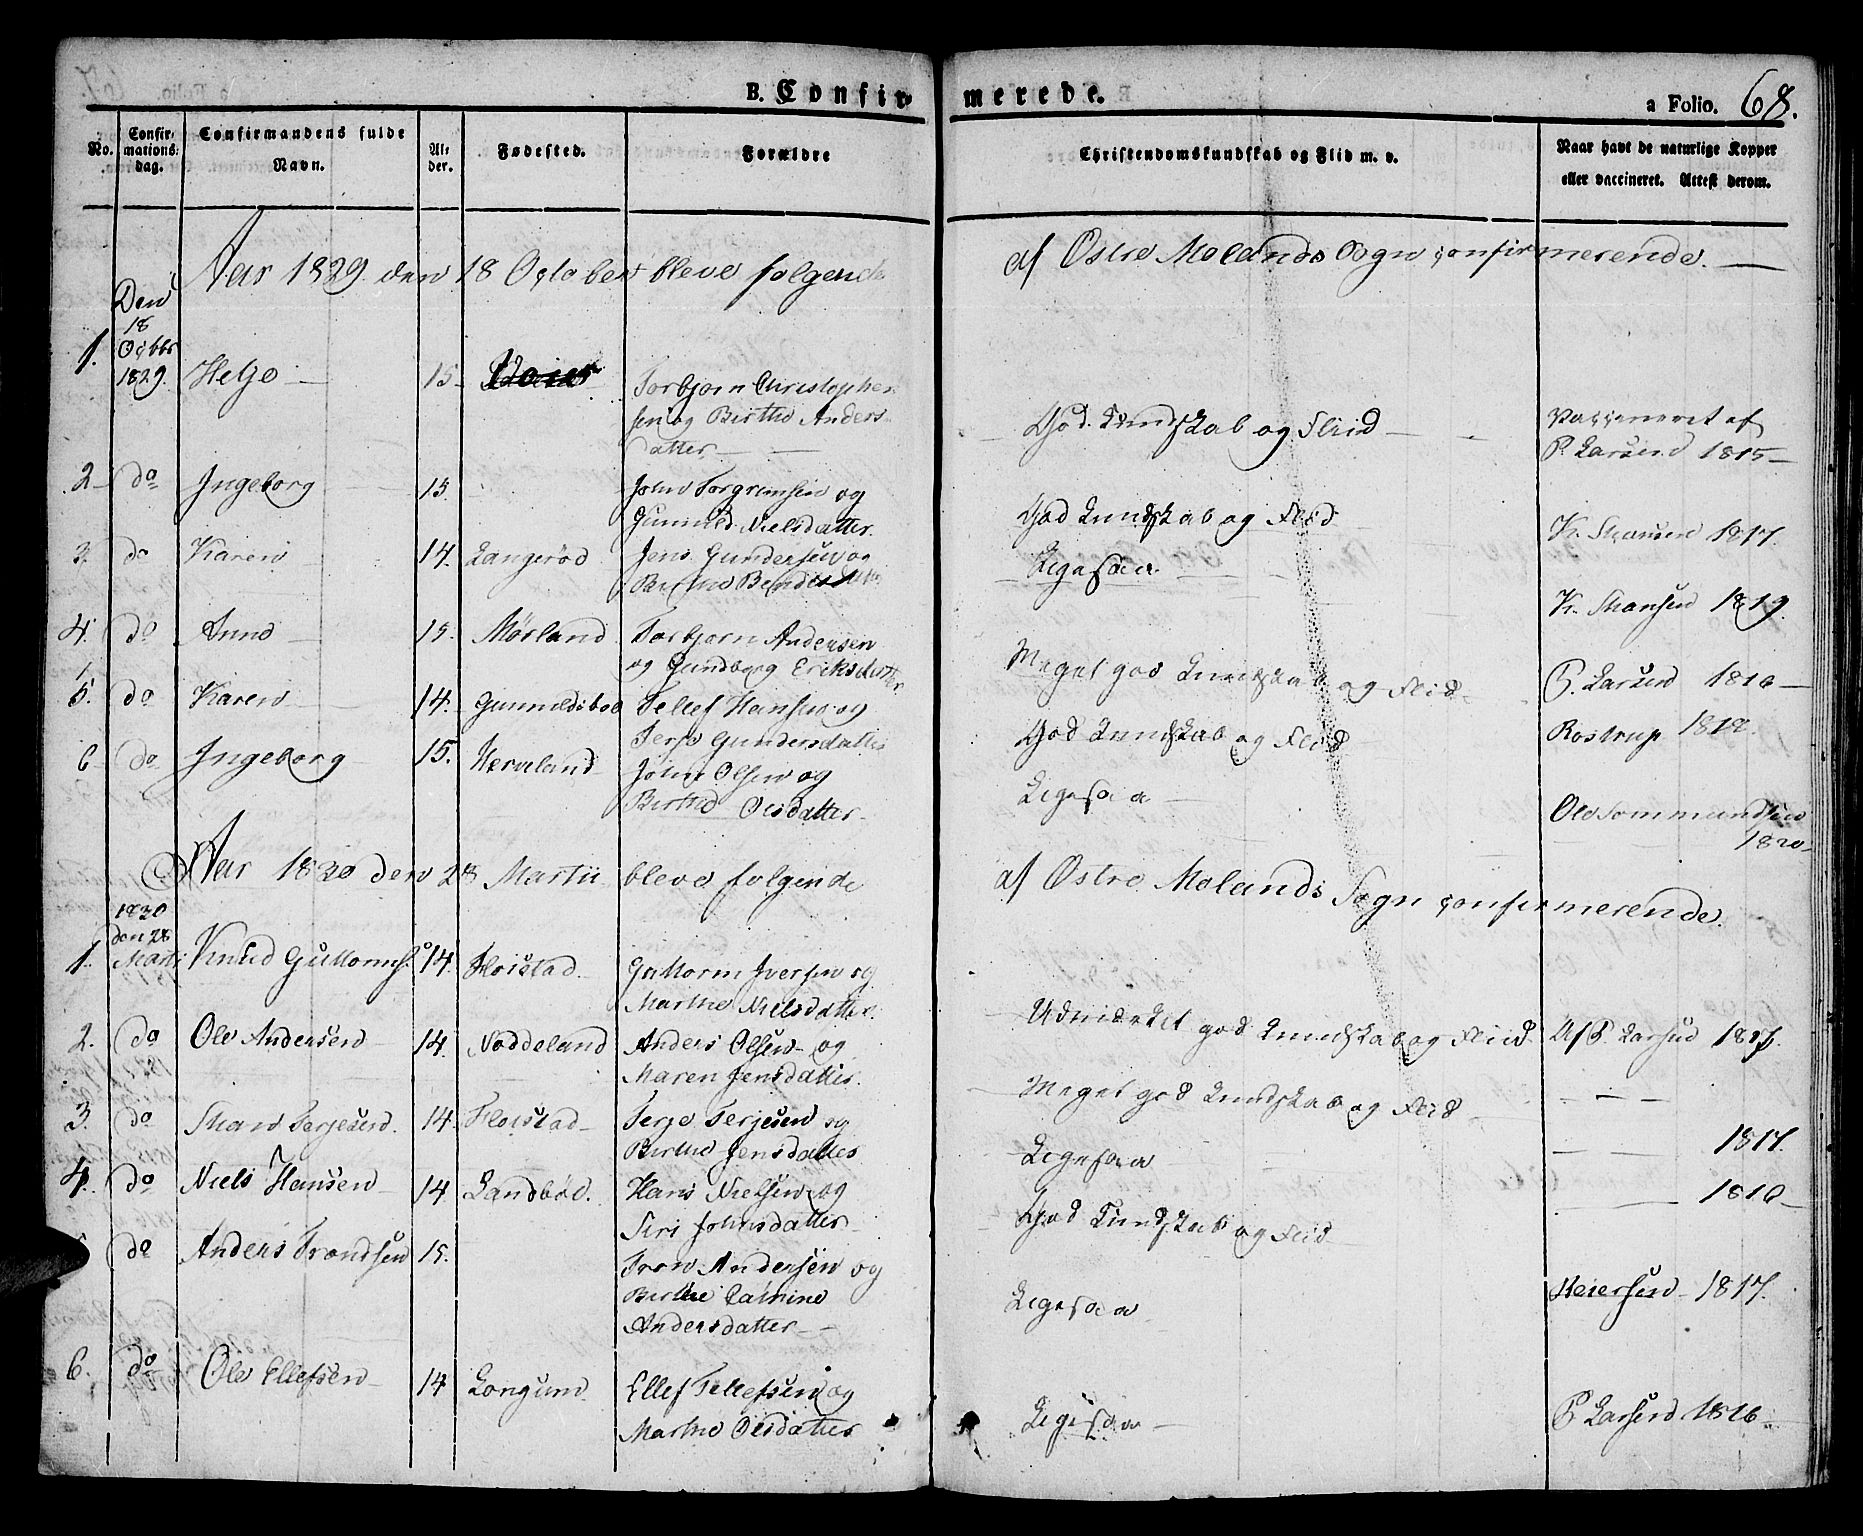 B. Confirmerede.
a Folio. 68.
No.
Confirmationsdag.
Confirmandens fulde Navn.
Alder.
Fødested.
Forældre
Christendomskundskab og Flid m. v.
Naar havt de naturlige Kopper
eller vaccineret. Attest derom.
Aar 1829 den 18 October bleve følgende af Østre Molands Sogn confirmerende.
1. Den 18 Octbr 1829. Helje 15 Torbjørn Christophersen og Birthe Andersdatter God Kundskab og Fliid Vaccineret af P. Larsen 1815
2 do Ingeborg 15. John Torgrimsen og Gunnild Nielsdatter. God Kundskab og Fliid K. Thomsen 1817.
3. do Karen 14. Langerød Jens Gundersen og Birthe Bendixdatter Ligesaa K. Thomsen 1819.
4. do Anne 15. Mørland Torbjørn Andersen og Gundborg Eriksdatter Meget god Kundskab og Fliid P. Larsen 1816
5. do Karen 14. Gunnildsboe Tellef Hansen og Terje Gundersdatter God Kundskab og Fliid Rostrup 1812.
6 do Ingeborg 15. Herveland John Olsen og Birthe Olsdatter Ligesaa Ole Tommundsen 1820
Aar 1830 den 28 Martii bleve følgende af Østre Molands Sogn confirmerende.
1. 1830 den 28 Marti Knud Guttorms. 14. Floistad Guttorm Iversen og Marthe Nielsdatter. Udmærket god Kundskab og Fliid Af P. Larsen 1817.
2. do Ole Andersen 14. Noddeland Anders Olsen og Maren Jensdatter. Meget god Kundskab og Fliid — — —
3. do Terjesen. 14. Floistad Terje Terjesen og Birthe Jensdatter Ligesaa — — 1817.
4. do Niels Hansen 14 Landbød. Hans Nielsen og Siri Johnsdatter God Kundskab og Fliid — — 1816
5 do Anders Trondsen 15. Tron Andersen og Birthe Andersdatter Ligesaa Heiersen 1817.
6. do Ole Ellefsen 14 Longum Ellef Tellefsen og Marthe Olsdatter Ligesaa P Larsen 1816